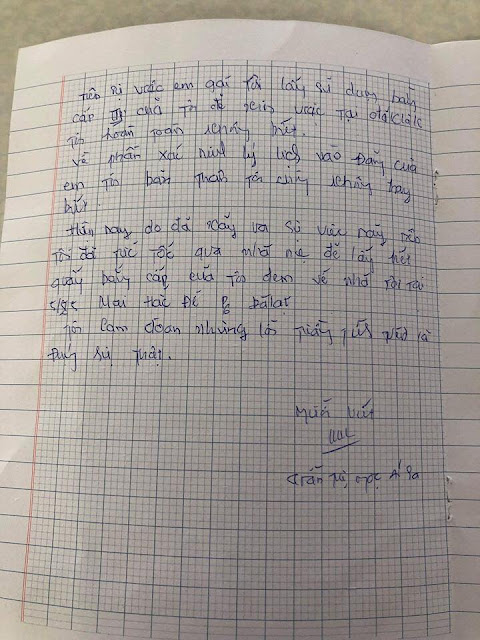 sự việc em gái tôi lấy sử dụng bằng
cấp của tôi để xin việc tại đăklăk
tôi hoàn toàn không biết.
về phần xác minh lý lịch vào Đảng của
em tôi bản thân tôi cũng không hay
biết.
Hôm nay do đã xảy ra sự việc này nên
tôi đã tức tốc qua nhà mẹ để lấy hết
giấy bằng cấp của tôi đem về nhà tôi tại
Mai Hắc Đế P6 Đàlạt
Tôi cam đoan những lời trên là
đúng sự thật.
Người viết
Trần thị ngọc Ái Sa